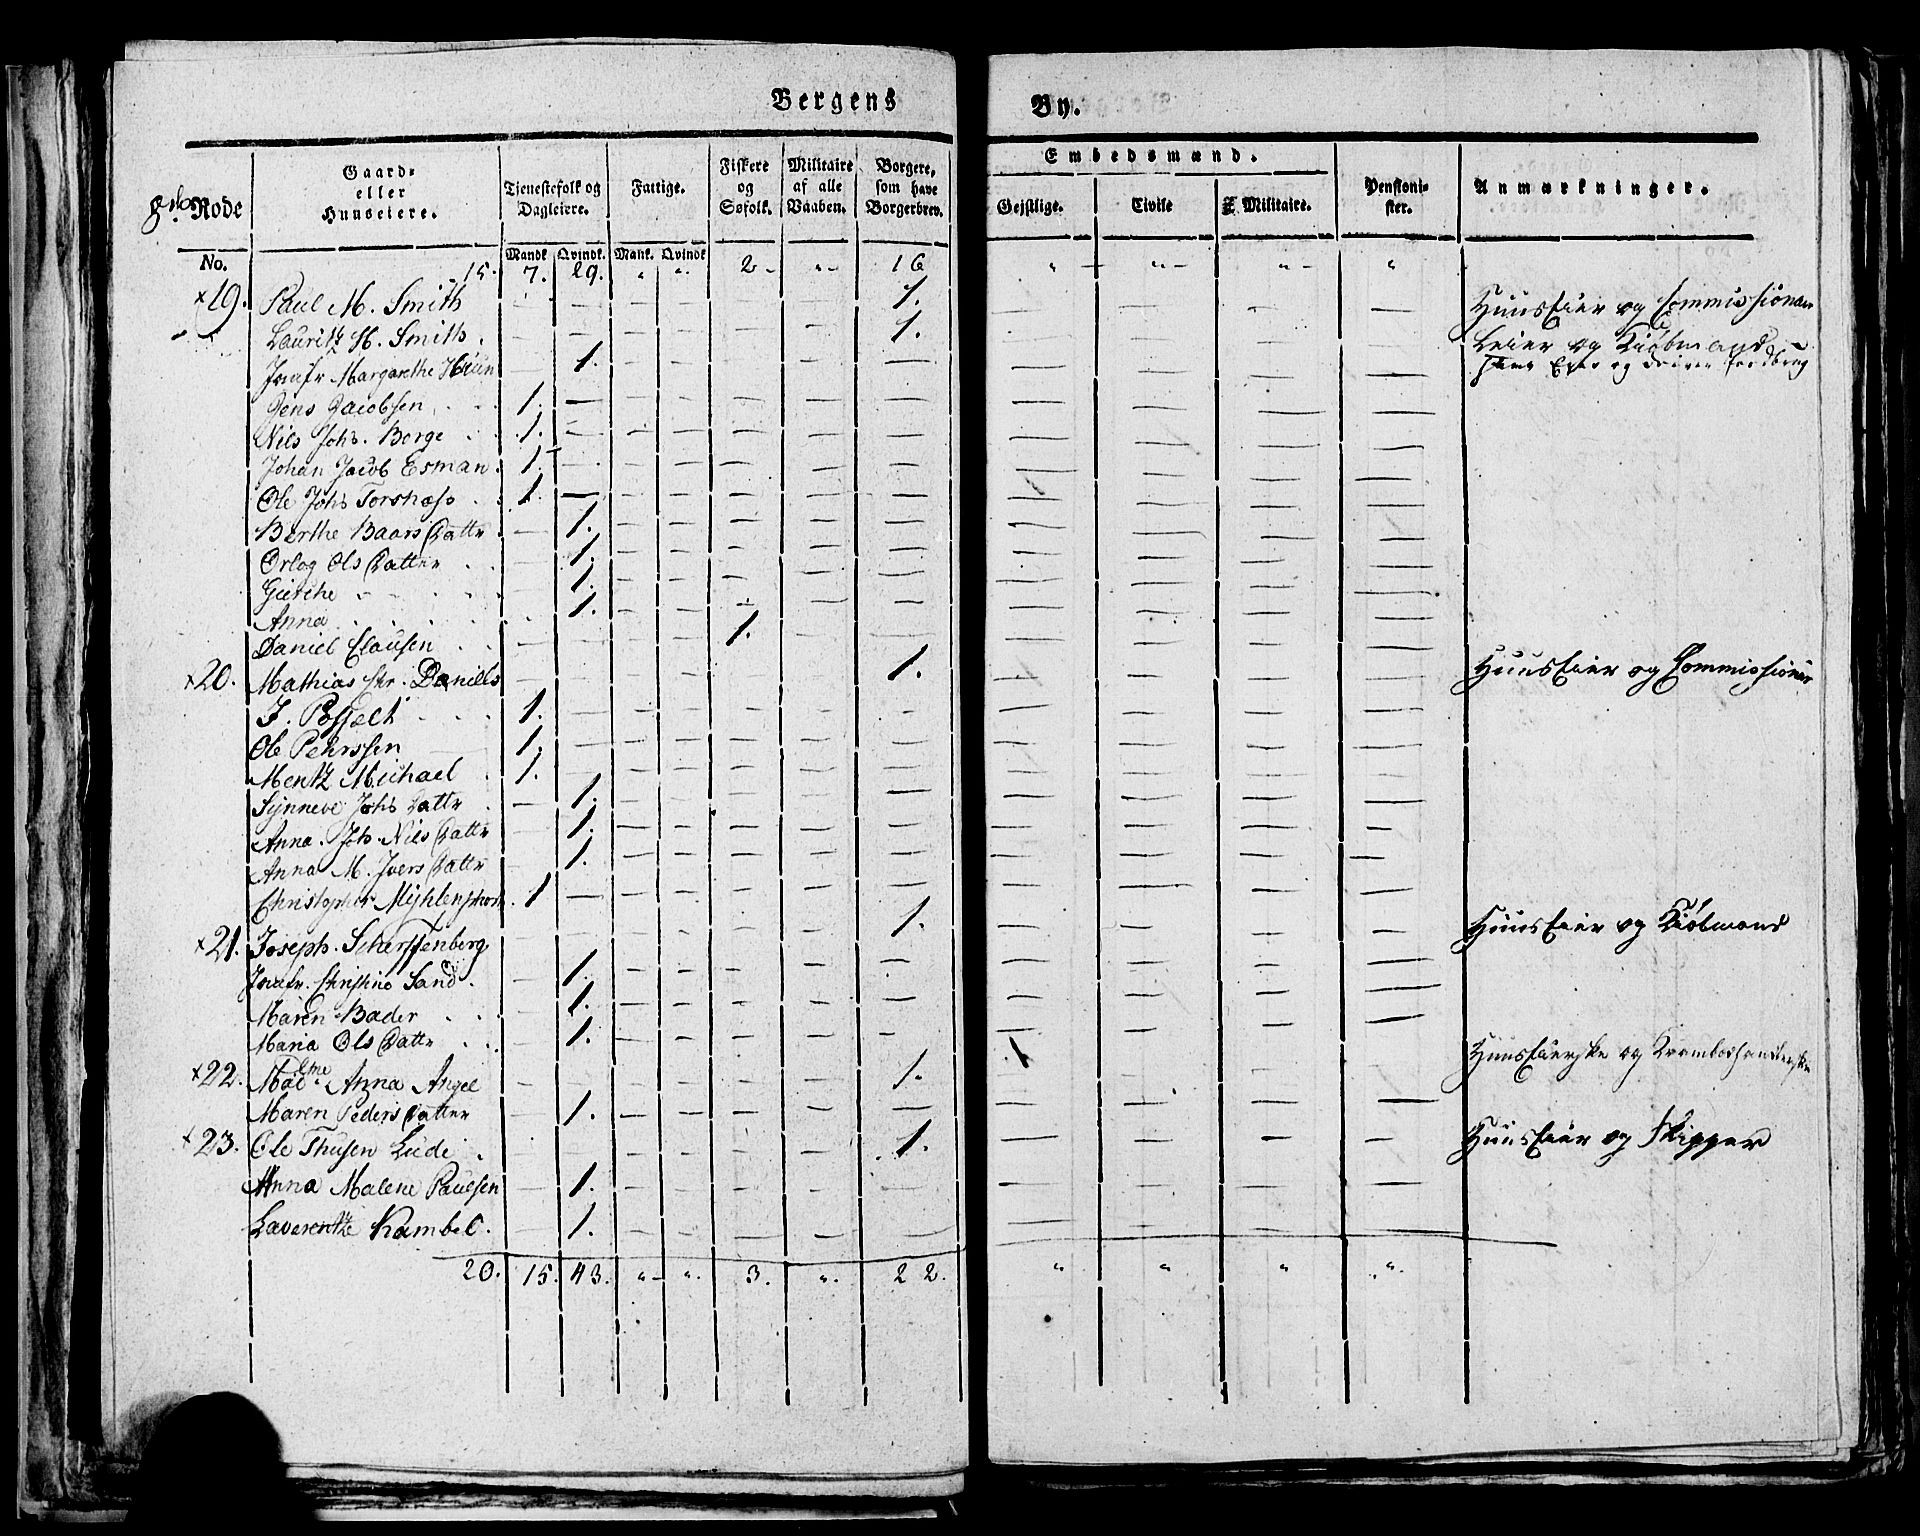 Bergens By.
8de Rode
Gaard- eller Huuseiere.
Tjenestefolk og Dagleiere.
Fattige.
Fiskere og Søfolk.
Militaire af alle Vaaben.
Borgere, som have Borgerbrev.
Embedsmænd.
Gejstlige.
Civile
Militaire.
Pensionister.
Anmærkninger.
No.
Mandk Qvindk. Mank. Qvindk
15. 7. 29. " " 2 - " - 16 " - " - " - "
x19. Paul M. Smith - - - - - - 1. - - - - Huuseier og Commissionair
Lauritz H. Smith. - - - - - - 1. - - - - Leier og Kiöbmand
Jomfr Margarethe - 1. - - - - - - - - -
Jens Jacobsen 1. - - - - - - - - - -
Nils Johs. Borge 1. - - - - - - - - - -
Johan Jacob Esman 1. - - - - - - - - - -
Ole Johs Torsnæss 1. - - - - - - - - - -
Berthe Baars Datter - 1. - - - - - - - - -
Orlog Ols Datter - 1. - - - - - - - - -
Gierthe - 1. - - - - - - - - -
Anna 1. - - - - - - - - -
Daniel Clausen 1. - - - - - -
x20. Mathias Chr. Daniels - - - - - - 1. - - - - Huuseier og Commissionair
J. Possælt 1. - - - - - - - - - -
Ole Pehrssen 1. - - - - - - - - - -
Mentz Michael 1. - - - - - - - - - -
Synneve Johs Dattr - 1. - - - - - - - - -
Anna Joh. Nils Dattr - 1. - - - - - - - - -
Anna M. Ivers Dattr - 1. - - - - - - - - -
Christopher 1 - - - - - - - - - -
x21. Joseph Scherffenberg - - - - - - 1. - - - - Huuseier og Kiöbmand
Jomfr. Christine Sand. - 1. - - - - - - - - -
Maren Bader 1. - - - - - - - - -
Maria Ols Datter 1. - - - - - - - - -
x22. Madme Anna Angel - - - - - - 1. - - - Huuseierske og Kramboehandlerske
Maren Peders Datter - 1. - - - - - - - - -
x23. Ole Thusen Lude - - - - - 1. - - - - Huuseier og Skipper
Anna Malene Paulsen - 1. - - - - - - - - -
Laverentze Kambel. - 1. - - - - - - - - -
20. 15. 43. " " 3. " 22. " " " "